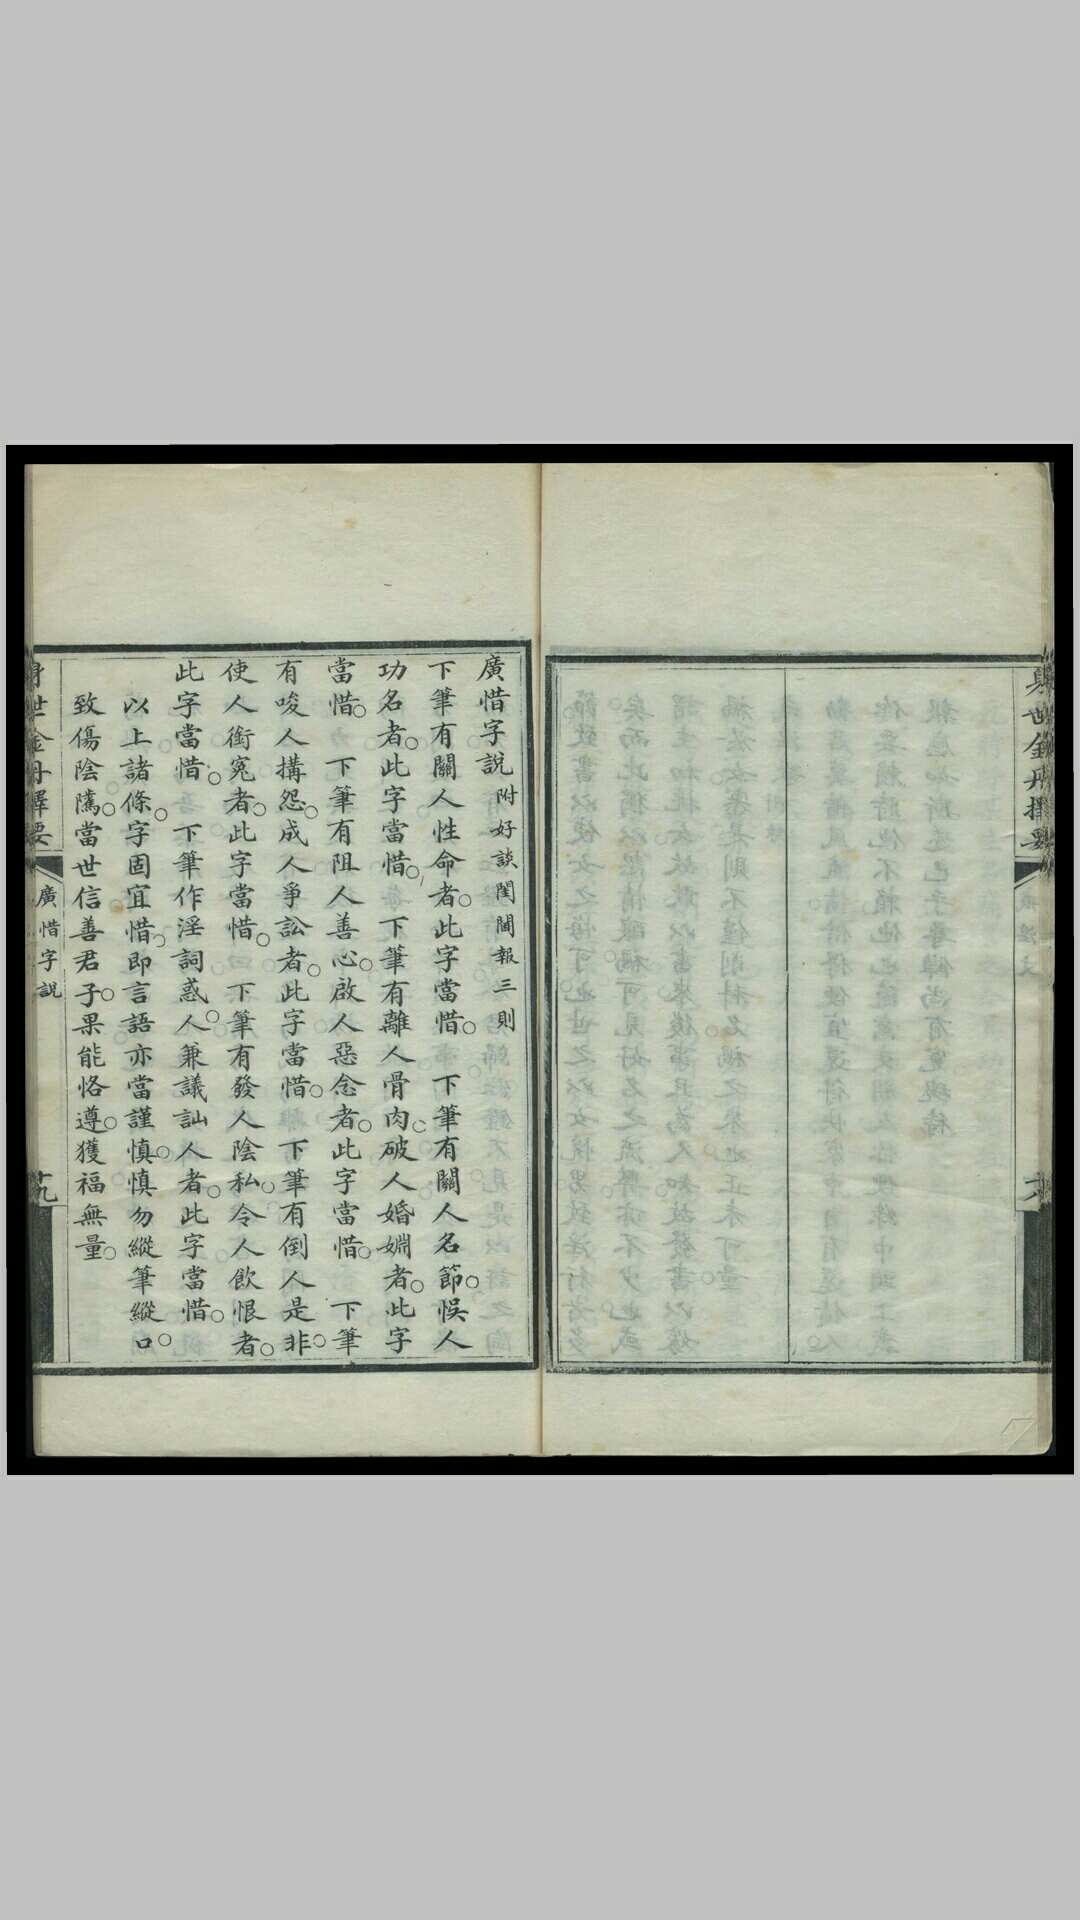 身世金丹擇要
廣惜字說 附好談閨閫報三則
下筆有關人性命者。此字當惜。 下筆有關人名節。悞人
功名者。此字當惜。 下筆有離人骨肉。破人婚姻者。此字
當惜。 下筆有阻人善心。啟人惡念者。此字當惜。 下筆
有唆人搆怨。成人爭訟者。此字當惜。 下筆有倒人是非。
使人銜冤者。此字當惜。 下筆有發人陰私。令人飲恨者。
此字當惜。 下筆作淫詞惑人。兼議訕人者。此字當惜。
以上諸條。字固宜惜。即言語亦當謹慎。慎勿縱筆縱口。
致傷陰騭。當世信善君子。果能恪遵。獲福無量。
身世金丹擇要
廣惜字說
十九